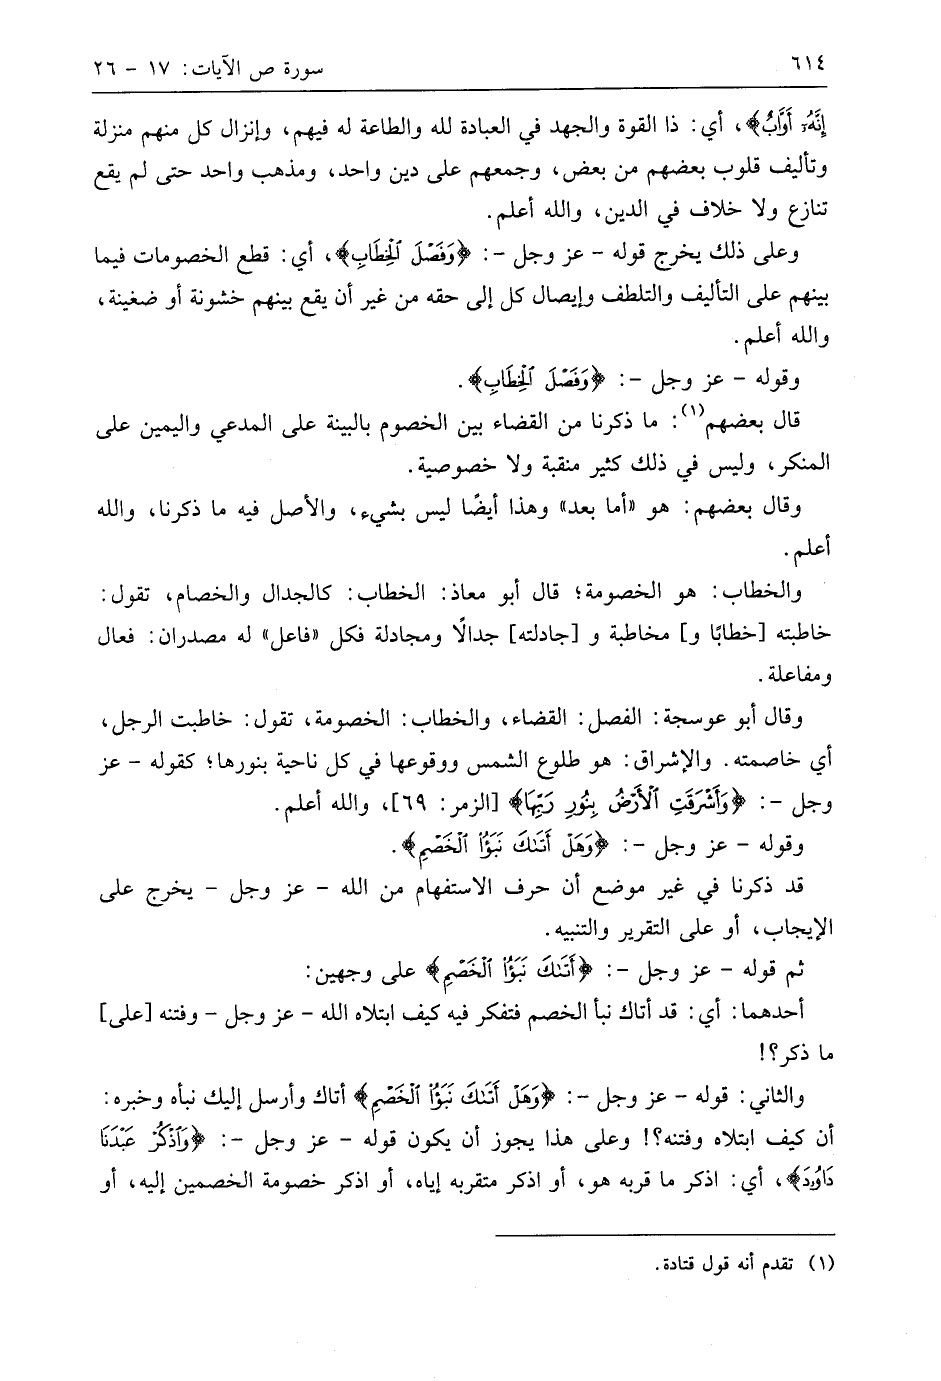 ٦١٤
سورة ص الآيات: ١٧ - ٢٦
إِنَّهُۥٓ أَوَّابٌ﴾، أي: ذا القوة والجهد في العبادة لله والطاعة له فيهم، وإنزال كل منهم منزلة
وتأليف قلوب بعضهم من بعض، وجمعهم على دين واحد، ومذهب واحد حتى لم يقع
تنازع ولا خلاف في الدين، والله أعلم.
وعلى ذلك يخرج قوله - عز وجل -: ﴿وَفَصْلَ ٱلْخِطَابِ﴾، أي: قطع الخصومات فيما
بينهم على التأليف والتلطف وإيصال كل إلى حقه من غير أن يقع بينهم خشونة أو ضغينة،
والله أعلم.
وقوله - عز وجل -: ﴿وَفَصْلَ ٱلْخِطَابِ﴾.
قال بعضهم(١): ما ذكرنا من القضاء بين الخصوم بالبينة على المدعي واليمين على
المنكر، وليس في ذلك كثير منقبة ولا خصوصية.
وقال بعضهم: هو «أما بعد» وهذا أيضًا ليس بشيء، والأصل فيه ما ذكرنا، والله
أعلم.
والخطاب: هو الخصومة؛ قال أبو معاذ: الخطاب: كالجدال والخصام، تقول:
خاطبته [خطابًا و] مخاطبة و [جادلته] جدالًا ومجادلة فكل «فاعل» له مصدران: فعال
ومفاعلة.
وقال أبو عوسجة: الفصل: القضاء، والخطاب: الخصومة، تقول: خاطبت الرجل،
أي خاصمته. والإشراق: هو طلوع الشمس ووقوعها في كل ناحية بنورها؛ كقوله - عز
وجل -: ﴿وَأَشْرَقَتِ ٱلْأَرْضُ بِنُورِ رَبِّهَا﴾ [الزمر: ٦٩]، والله أعلم.
وقوله - عز وجل -: ﴿وَهَلْ أَتَىٰكَ نَبَؤُا۟ ٱلْخَصْمِ﴾.
قد ذكرنا في غير موضع أن حرف الاستفهام من الله - عز وجل - يخرج على
الإيجاب، أو على التقرير والتنبيه.
ثم قوله - عز وجل -: ﴿أَتَىٰكَ نَبَؤُا۟ ٱلْخَصْمِ﴾ على وجهين:
أحدهما: أي: قد أتاك نبأ الخصم فتفكر فيه كيف ابتلاه الله - عز وجل - وفتنه [على]
ما ذكر؟!
والثاني: قوله - عز وجل -: ﴿وَهَلْ أَتَىٰكَ نَبَؤُا۟ ٱلْخَصْمِ﴾ أتاك وأرسل إليك نبأه وخبره:
أن كيف ابتلاه وفتنه؟! وعلى هذا يجوز أن يكون قوله - عز وجل -: ﴿وَٱذْكُرْ عَبْدَنَا
دَاوُۥدَ﴾، أي: اذكر ما قربه هو، أو اذكر متقربه إياه، أو اذكر خصومة الخصمين إليه، أو
(١) تقدم أنه قول قتادة.